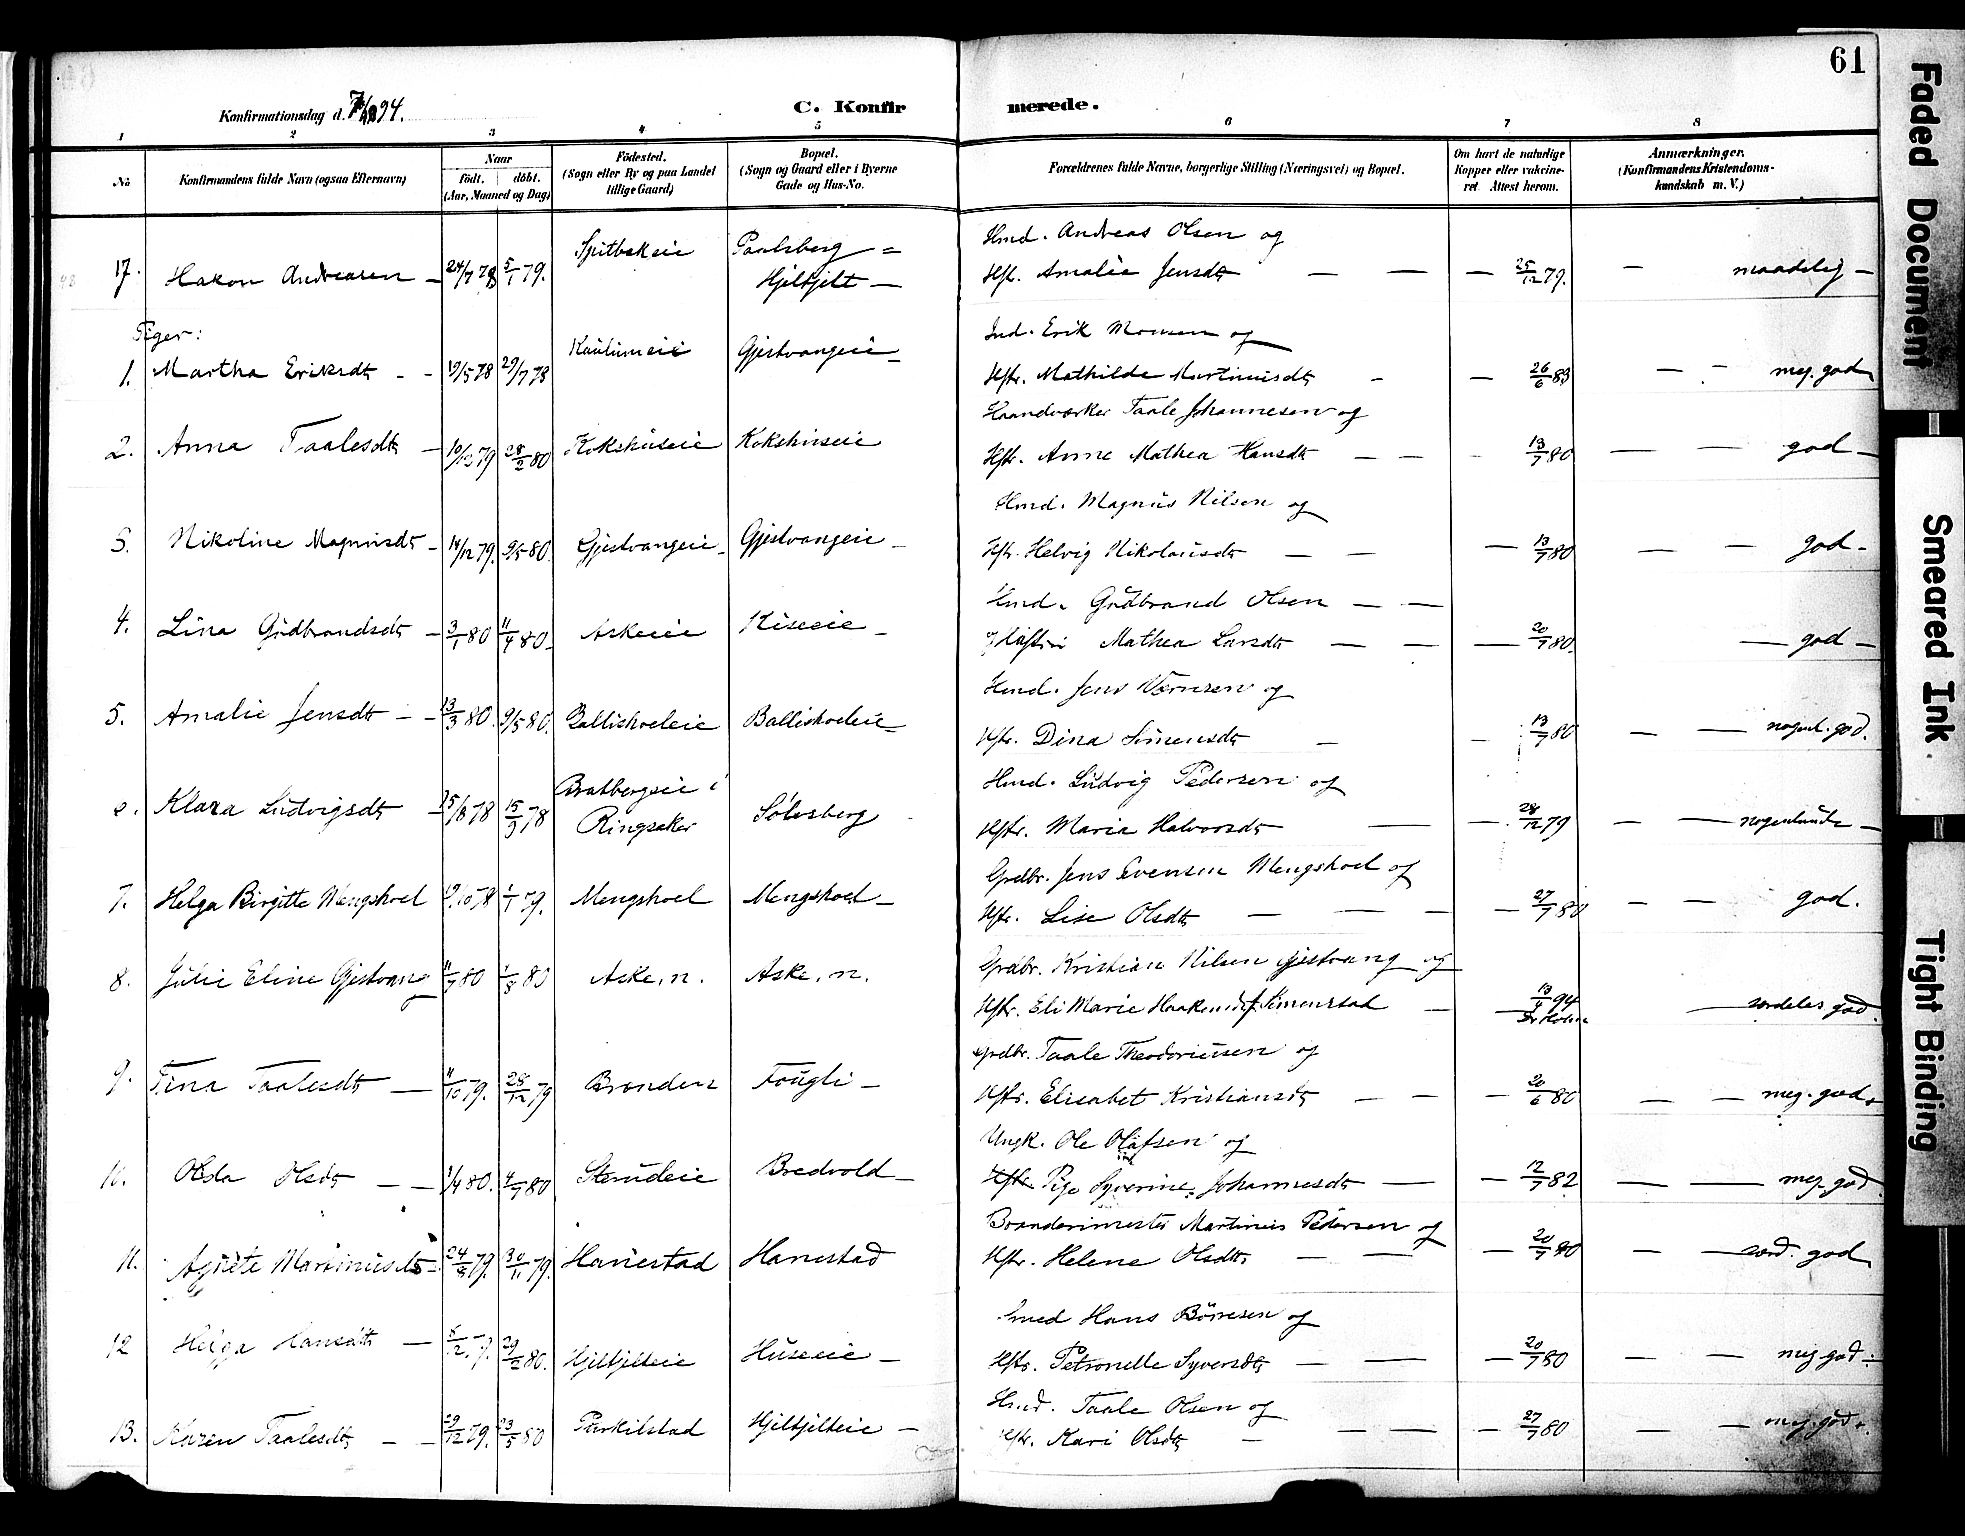 61
Konfirmationsdag d. 94.
C. Konfirmerede.
1 2 3 4 5 6 7 8
No
Konfirmandens fulde Navn (ogsaa Efternavn)
Naar
födt. döbt.
(Aar, Maaned og Dag)
Födested.
(Sogn eller By og paa Landet
tillige Gaard)
Bopæl.
(Sogn og Gaard eller i Byerne
Gade og Hus-No.
Forældrenes fulde Navne, borgerlige Stilling (Næringsvei) og Bopæl.
Om havt de naturlige
Kopper eller vakcine-
ret Attest herom.
Anmærkninger.
(Konfirmandens Kristendoms-
kundskab m. V.)
Hmd. Andreas Olsen og
17. Hakon Andreasen 24/7 78 5/1 79. Paalsberg =
Hjelkjelt —
Hft. Amalie Jensdt 25/12 79. — maadelig —
Piger:
Ind. Erik Monsen og
1. Martha Eriksdt 19/5 78 29/7 78 Gjestvangeie
Hftr. Mathilde Martinusdt — 26/6 83 — meg. god
Haandværker Taale Johannesen og
2. Anna Taalesdt — 10/12 79 28/2 80 Kokshuseie Kokshuseie
Hftr. Anne Mathea Hansdt — 13/7 80 — god —
Hmd. Magnus Nilsen og
3. Nikoline Magnusdt — 14/12 79. 9/5 80. Gjestvangeie Gjestvangeie —
Hftr. Helvig Nikolausdt — 13/7 80 — god —
Hmd. Gudbrand Olsen —
4. Lina Gudbrandsdt — 3/1 80 11/4 80 Askeeie Kiseeie —
og Hustru Mathea Larsdt — 20/7 80. — god —
Hmd. Jens Evensen og
5. Amalie Jensdt — 13/3 80. 9/5 80. Ballishoeleie Ballishoeleie
Hftr. Dina Simensdt — 13/7 80 — nogenl. god.
Hmd. Ludvig Pedersen og
Klara Ludvigsdt 15/8 78 15/9 78 Bratbergeie i
Ringsaker Sölvsberg
Hftr. Maria Halvorsdt — 28/12 79 — nogenlunde —
Grdbr. Jens Evensen Mengshoel og
7. Helga Birgitte Mengshoel 19/10 78 1/1 79. Mengshoel Mengshoel —
Hftr. Lise Olsdt — 27/7 80 — god.
Grdbr. Kristian Nilsen Gjestvang og
8. Julie Eline Gjestvang 11/7 80 1/8 80 Aske, n. Aske, n.
Hftr. Eli Marie Haakensdt f. Simenstad — 13/4 94
Dr Holm — særdeles god.
Grdbr. Taale Theodoriusen og
9. Tina Taalesdt — 11/10 79. 28/12 79 Brenden Fougli —
Hftr. Elisabet Kristiansdt — 20/6 80 — meg. god.
Ungk. Ole Olafsen og
10. Olsdt — 1/4 80. 4/7 80 Sterudeie Bredvold —
Pige Syverine Johannesdt — 12/7 82 — meg. god.
Brænderimester Martinus Pedersen og
11. Agnete Martinusdt — 24/8 79. 30/11 79. Hanestad Hanestad
Hftr. Helene Olsdt. — 20/7 80 — særd. god
Smed Hans Börresen og
12 Helga Hansdtt — 5/12 79. 29/2 80. Hjelkjelteie Huseeie —
Hftr. Petronelle Syversdt — 20/7 80 — meg god —
Hmd. Taale Olsen og
13. Karen Taalesdt — 29/12 79. 23/5 80 Parkilstad Hjelkjelteie —
Hftr. Kari Olsdt — 27/7 80 — meg. god.
Faded Document
Smeared Ink
Tight Binding